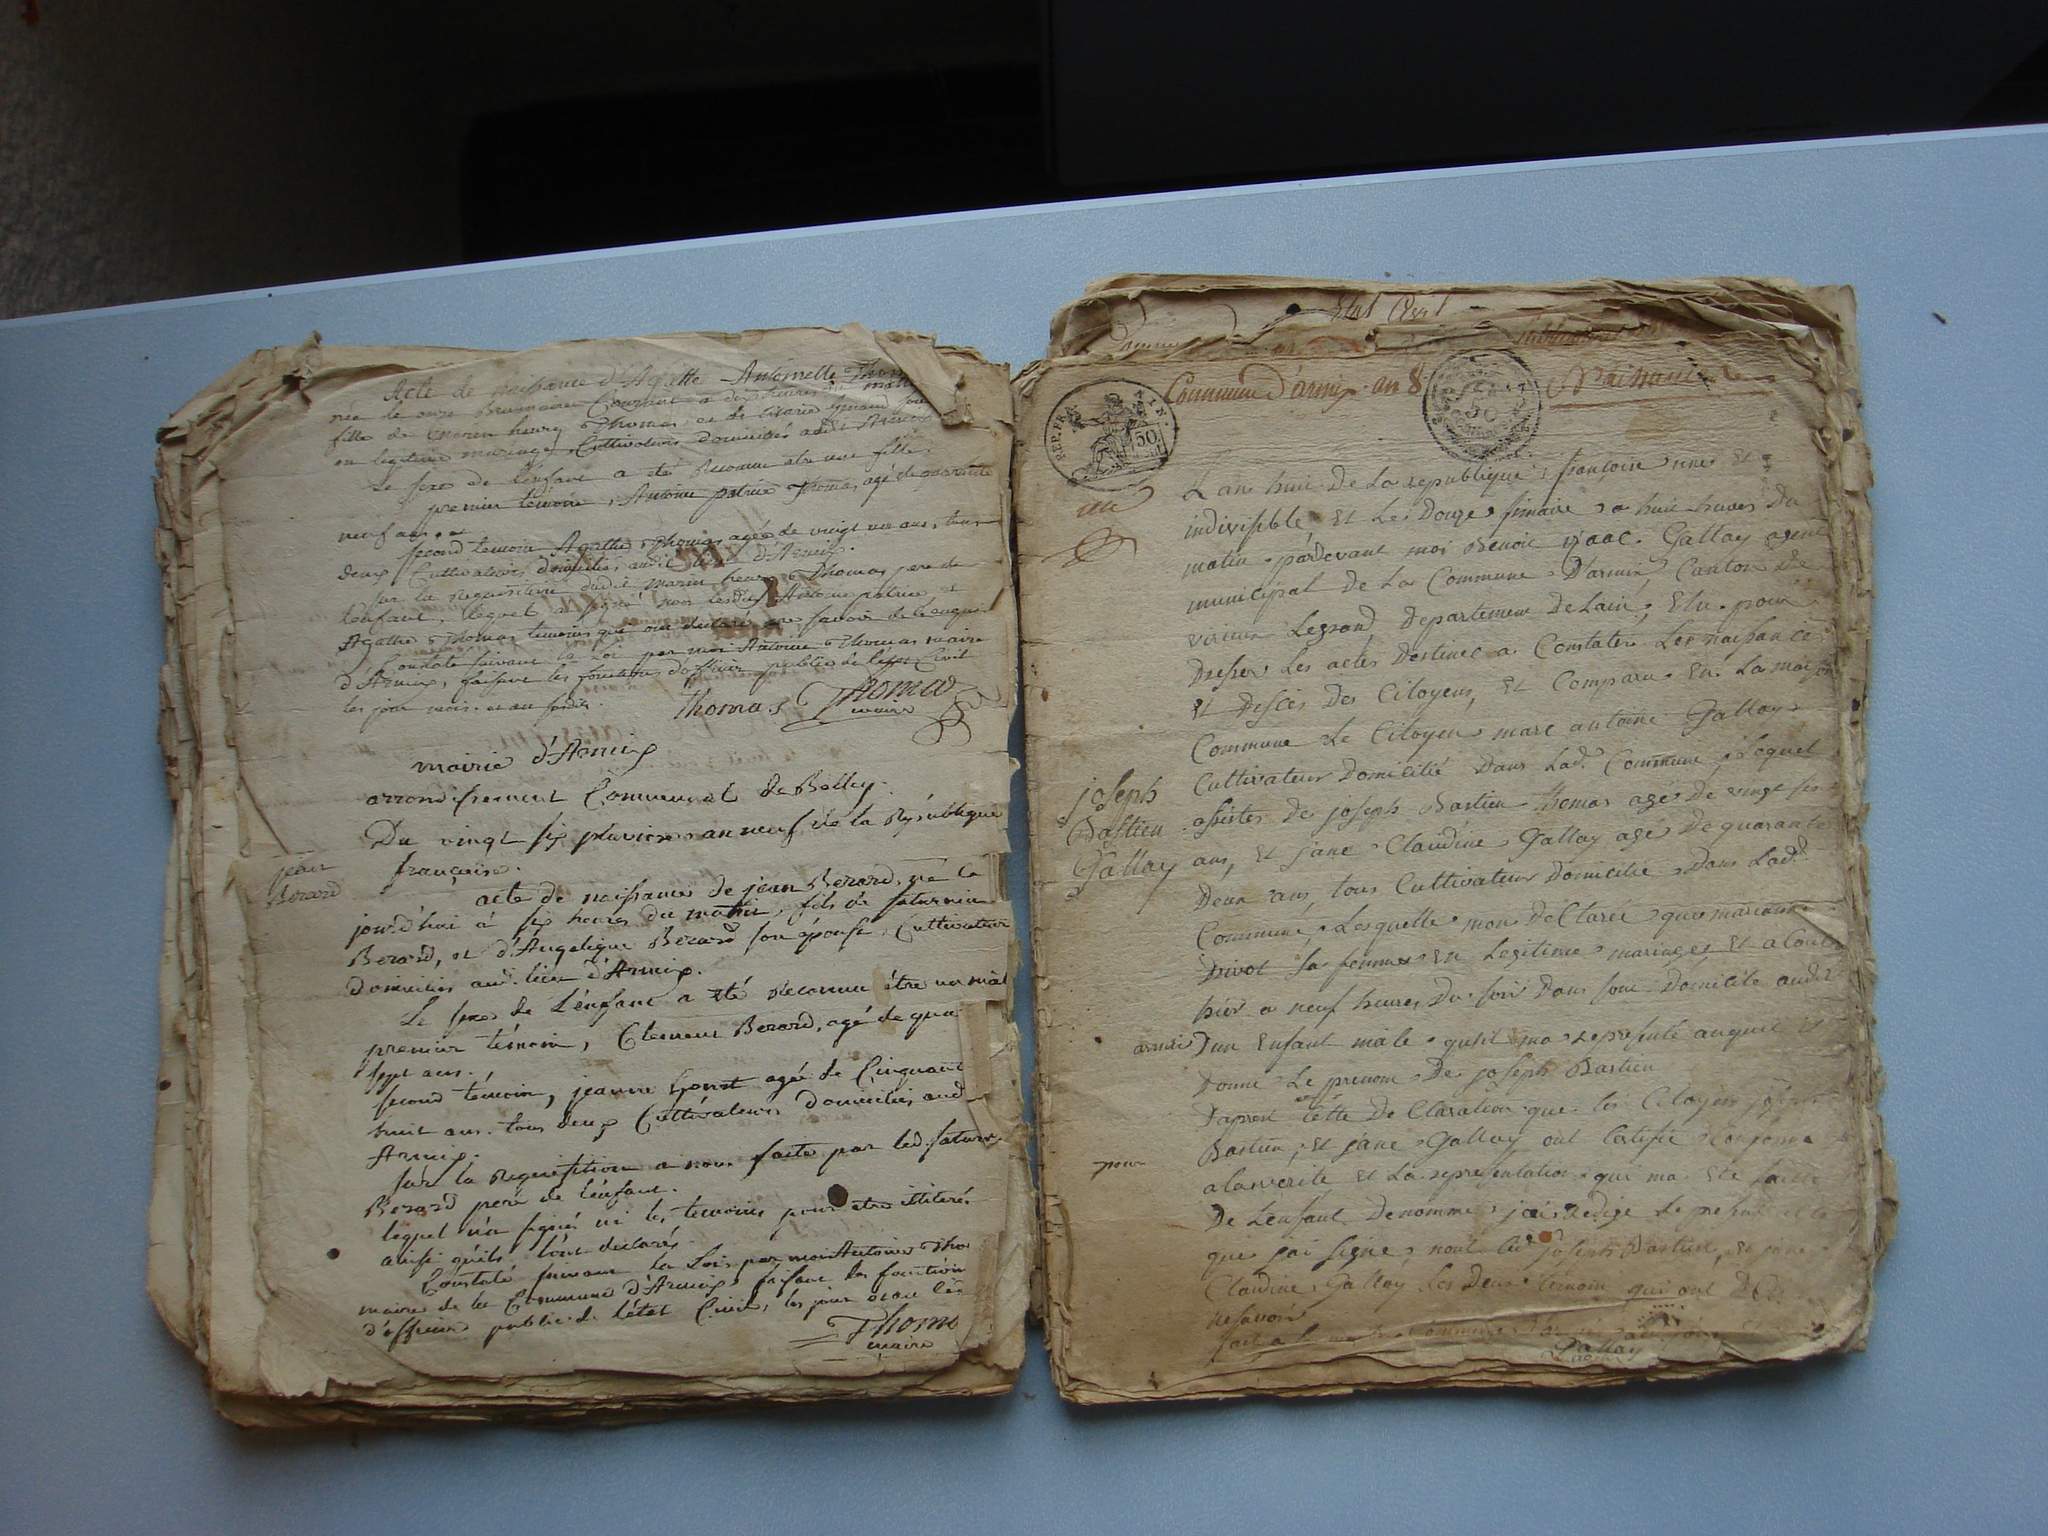 Acte de naissance d'Agathe Antoinette Thom
née le onze Brumaire Courant a dix heures du mat
fille de Marin henry Thomas et de
en legitime mariage, Cultivateurs domiciliés audit Armix
Le sexe de l'enfant a été Reconnu etre une fille.
premier temoin, Antoine patrice Thomas, agé de quarante
neuf ans.
second temoin Agathe Thomas agée de vingt un ans, tous
deux Cultivateurs domiciliés audit lieu d'Armix.
sur la Requisition dudit marin henry Thomas pere de
l'enfant, lequel a signé non lesdits Antoine patrice et
Agathe Thomas temoins qui ont declaré ne savoir de ce enquis
Constaté suivant la Loi par moi Antoine Thomas maire
d'Armix, faisant les fonctions d'officier public de l'état Civil
les jour mois et an susdits.
Thomas Thomas
maire
mairie d'Armix
arrondissement Communal de Belley.
Du vingt six pluviose an neuf de la République
française.
jean
Berard
acte de naissance de jean Berard, né ce
jourd'hui à six heures du matin, fils de saturnin
Berard, et d'Angelique Berard son épouse, Cultivateurs
domiciliés aud. lieu d'Armix.
Le sexe de L'enfant a été Reconnu être un mâl
premier témoin, Clement Berard, agé de qua
sept ans.
second témoin, jeanne agée de Cinquant
huit ans. tous deux Cultivateurs domiciliés aud.
Armix.
sur la Requisition a nous faite par led. saturn.
Berard pere de l'enfant.
lequel n'a signé ni les temoins pour etre illiteré
ainsi qu'ils l'ont declaré.
Constaté suivant la Loi, par moi Antoine Tho
maire de la Commune d'Armix, faisant les fonction
d'officier public de l'état Civil, les jour et an
Thoma
maire
Etat Civil
Commune d'armix an 8 Naissance
REP. FRA.
AIN.
50
50
L'an huit de La republique françoise une et
indivisible et Le Douze frimaire a huit heures Du
matin pardevant moi Benoit isaac Gallay agent
municipal de La Commune D'armix, Canton De
virieu Legrand, Departement De Lain, Elu pour
Dresser Les actes Destinee a Constater Les naissance
Et Desces Des Citoyens, Et Comparu En La maison
Commune Le Citoyen marc antoine Gallay
Cultivateur Domicilié Dans Lad. Commune, Lequel
joseph
Bastien
Gallay
assistes De joseph Bastien Thomas agé De vingt six
ans, Et jane Claudine Gallay agé De quarante
Deux ans, tous Cultivateur Domicilie Dans Lad.
Commune, Lesquelle mon DeClaree que marianne
Divot sa femme En Legitime mariage Et acouch
hier a neuf heures Du soir Dans son Domicile audit
armix D'un Enfant male quil ma represente auquel il
Donne Le prenom De joseph Bastien
D'apres Cette DeClaration que les Citoyen joseph
Bastien, Et jane Gallay ont Certifié Conforme
pour
ala verite Et La representation qui ma Ete faite
De Lenfant Denommé, jai redige Le present acte
que jai signé, non led. joseph Bastien, Et jane
Claudine Gallay Les Deux temoin qui ont
ne savoir
fait a la Commune
Gallay